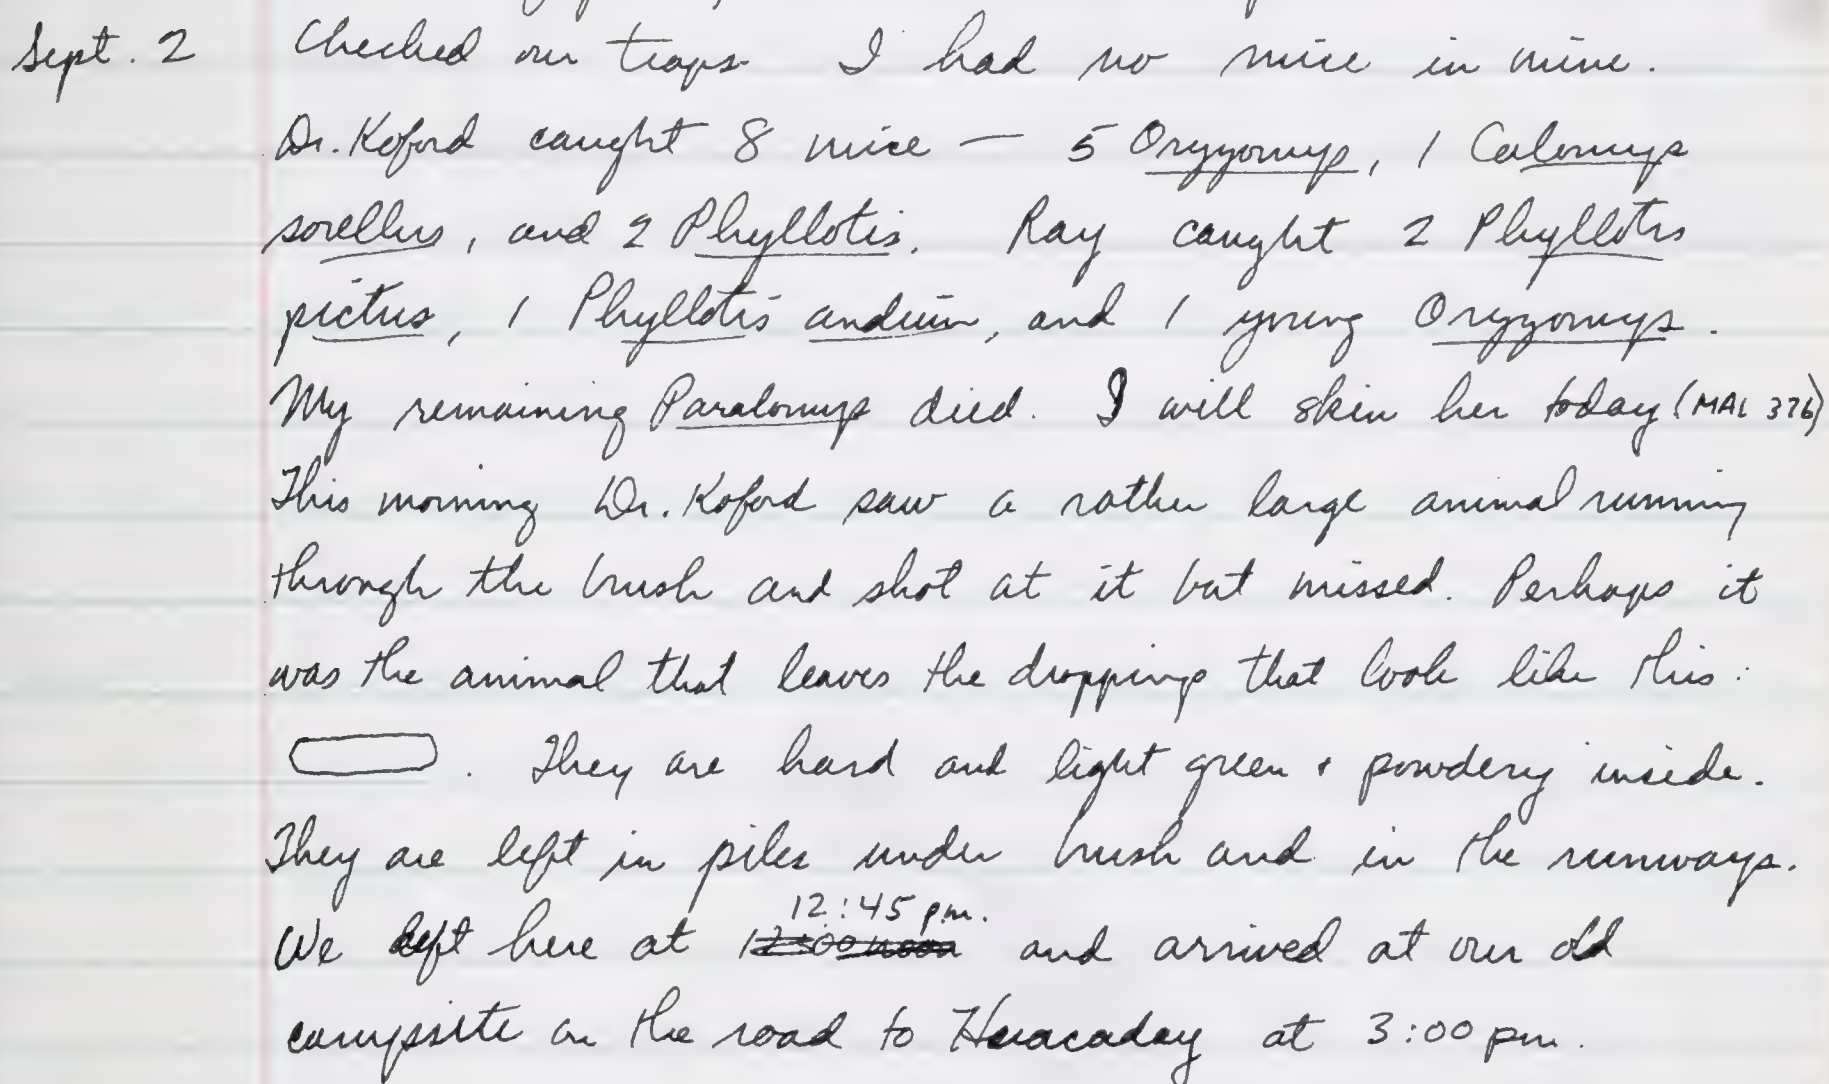 Sept. 2 Checked our traps. I had no mice in mine.
Dr. Koford caught 8 mice — 5 Oryzomys, 1 Calomys
sorellus, and 2 Phyllotis. Ray caught 2 Phyllotis
pictus, 1 Phyllotis andium, and 1 young Oryzomys.
My remaining Paralomys died. I will skin her today (MAL 376)
This morning Dr. Koford saw a rather large animal running
through the brush and shot at it but missed. Perhaps it
was the animal that leaves the droppings that look like this:
. They are hard and light green + powdery inside.
They are left in piles under brush and in the runways.
12:45 pm.
We left here at 12:00 noon and arrived at our old
campsite on the road to Huacaday at 3:00 pm.